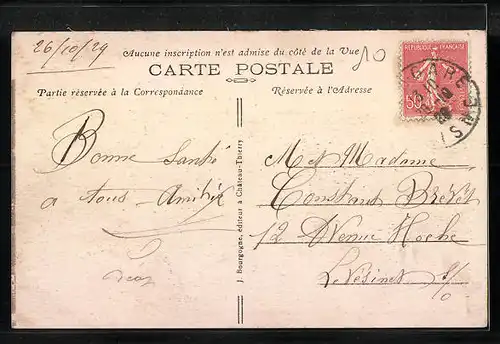 26/10/29
Aucune inscription n'est admise du côté de la Vue
10
CARTE POSTALE
Partie réservée à la Correspondance
Réservée à l'Adresse
REPUBLIQUE FRANÇAISE
50
Bonne Santé
a tous. Amitiés
J. Bourgogne, éditeur à Château-Thierry
M et Madame
Constant
12 Avenue Hoche
Le Vésinet S/O